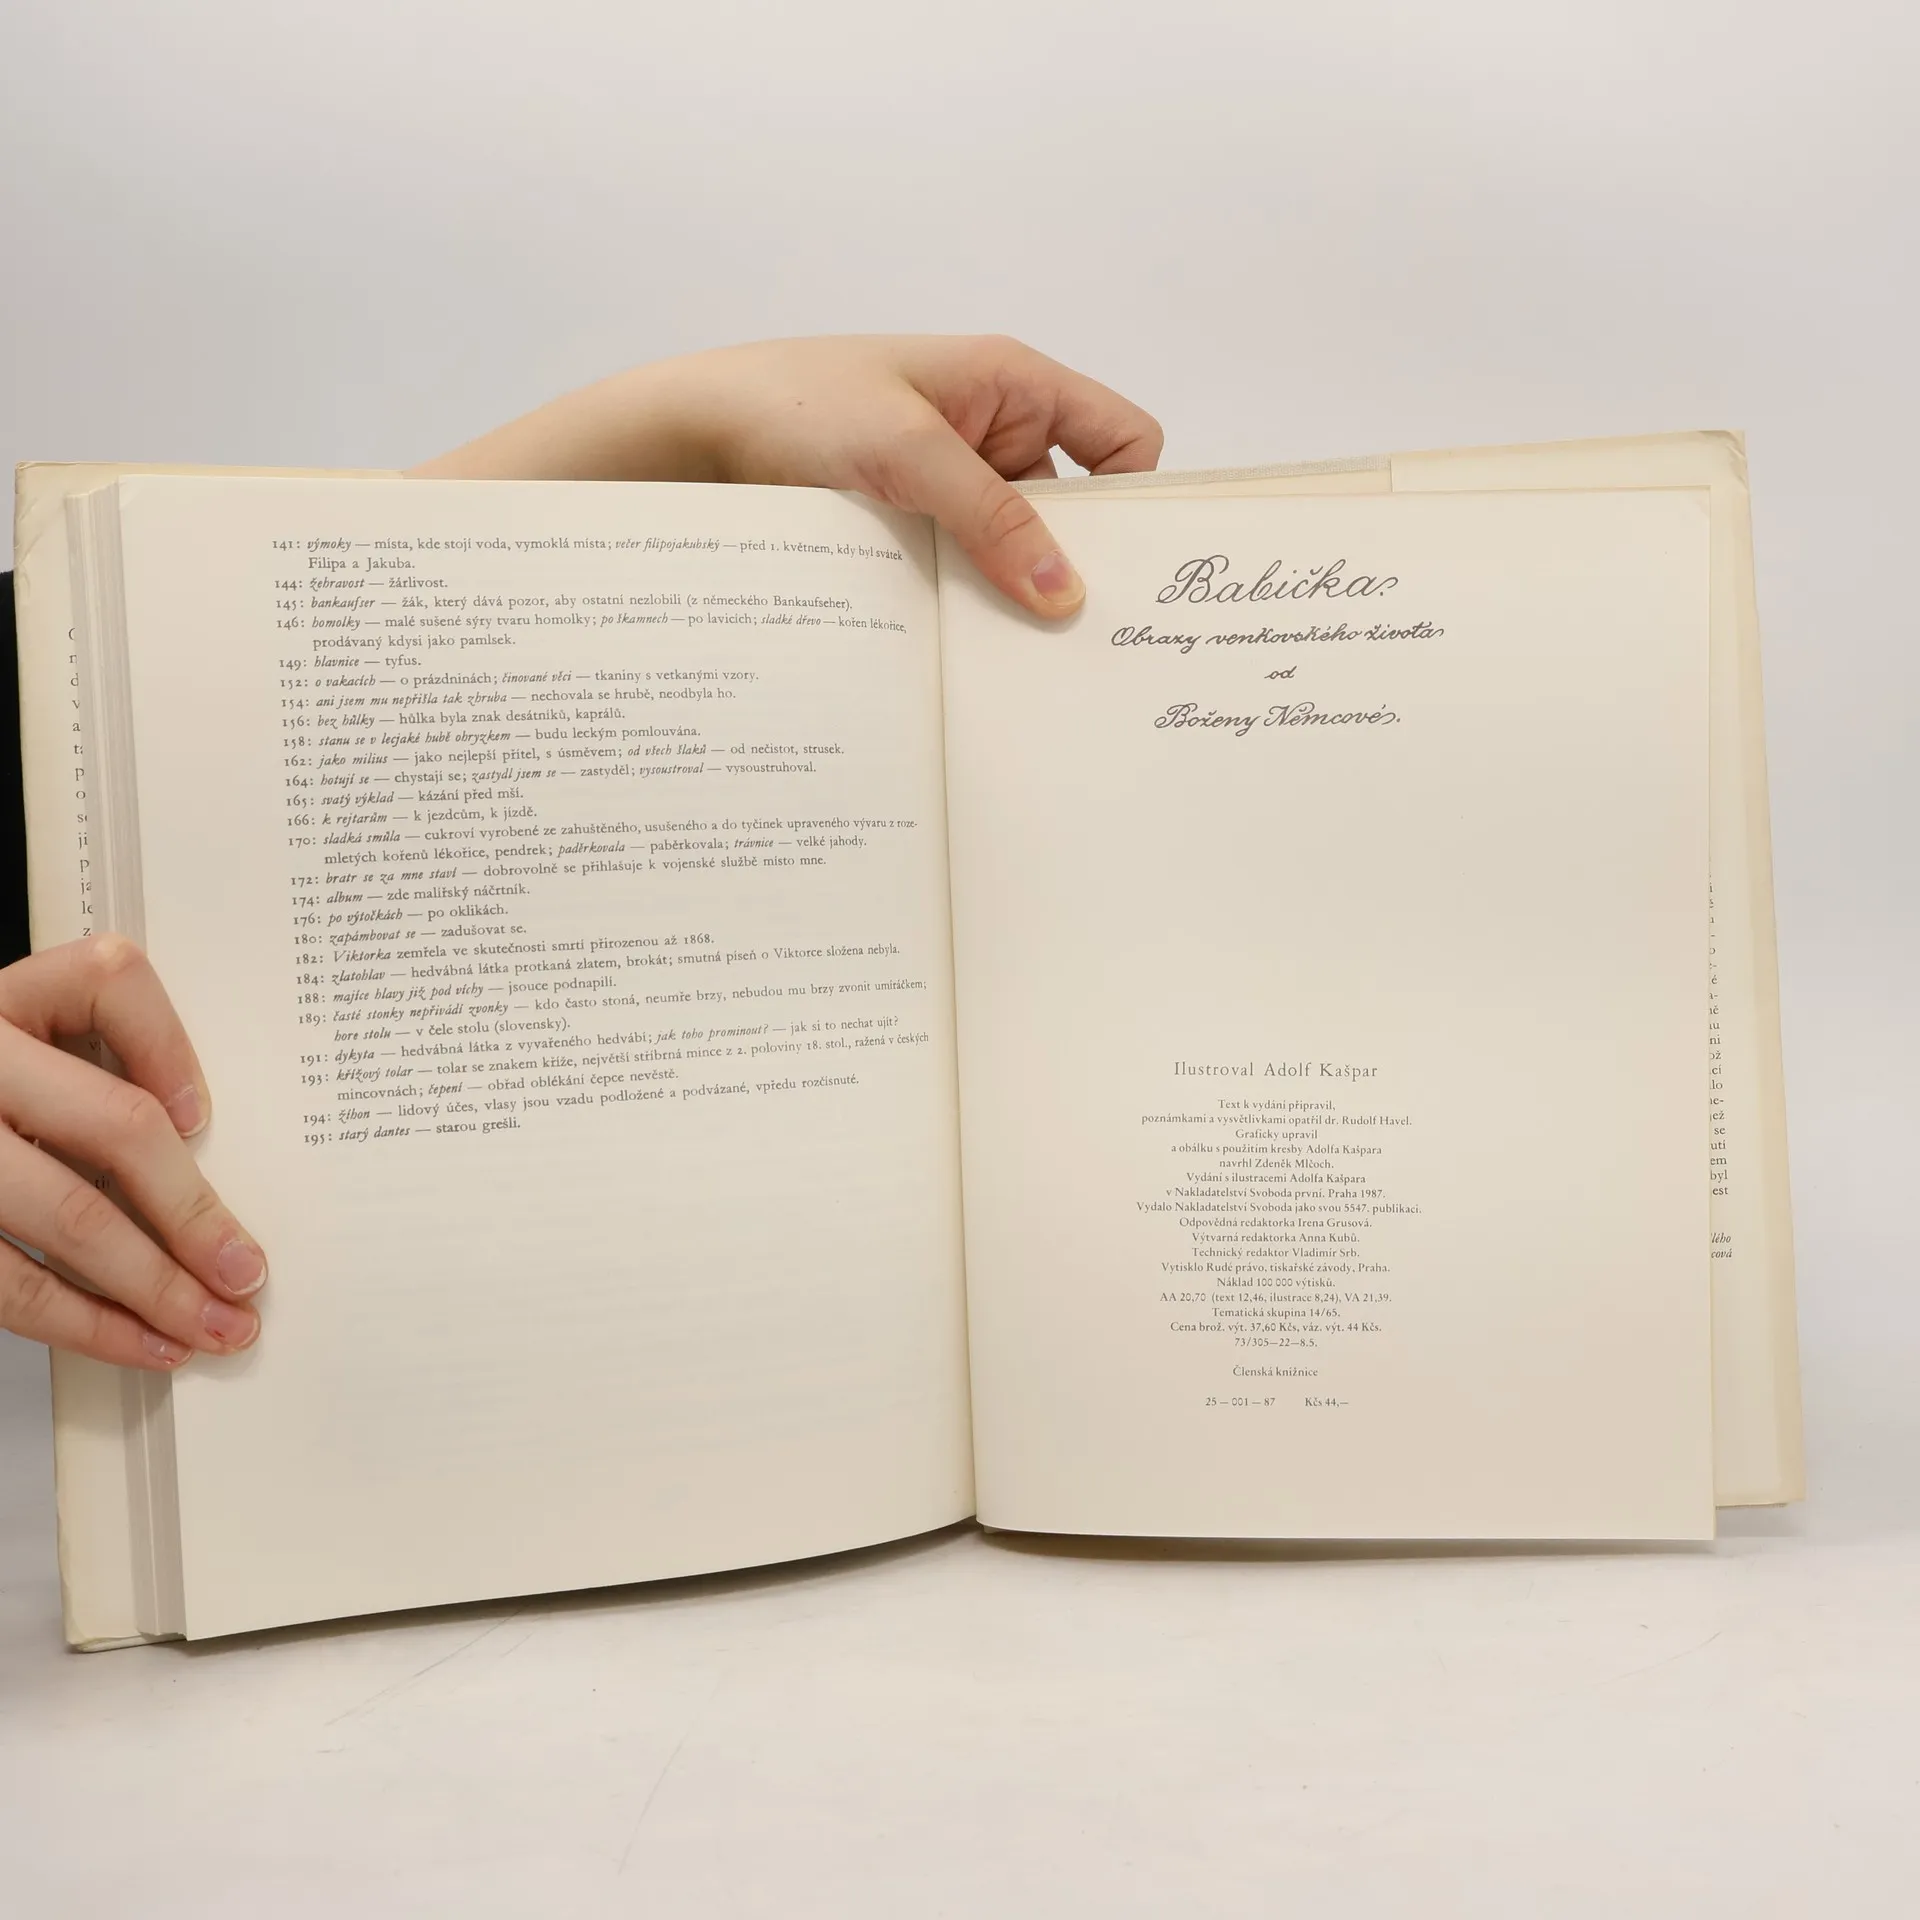 141: výmoky — místa, kde stojí voda, vymoklá místa; večer filipojakubský — před 1. květnem, kdy byl svátek
Filipa a Jakuba.
144: žehravost — žárlivost.
145: bankaufser — žák, který dává pozor, aby ostatní nezlobili (z německého Bankaufseher).
146: homolky — malé sušené sýry tvaru homolky; po škamnech — po lavicích; sladké dřevo — kořen lékořice,
prodávaný kdysi jako pamlsek.
149: hlavnice — tyfus.
152: o vakacích — o prázdninách; činované věci — tkaniny s vetkanými vzory.
154: ani jsem mu nepřišla tak zhruba — nechovala se hrubě, neodbyla ho.
156: bez hůlky — hůlka byla znak desátníků, kaprálů.
158: stanu se v lecjaké hubě ohryzkem — budu leckým pomlouvána.
162: jako milius — jako nejlepší přítel, s úsměvem; od všech šlaků — od nečistot, strusek.
164: hotují se — chystají se; zastydl jsem se — zastyděl; vysoustroval — vysoustruhoval.
165: svatý výklad — kázání před mší.
166: k rejtarům — k jezdcům, k jízdě.
170: sladká smůla — cukroví vyrobené ze zahuštěného, usušeného a do tyčinek upraveného vývaru z roze-
mletých kořenů lékořice, pendrek; paděrkovala — paběrkovala; trávnice — velké jahody.
172: bratr se za mne staví — dobrovolně se přihlašuje k vojenské službě místo mne.
174: album — zde malířský náčrtník.
176: po výtočkách — po oklikách.
180: zapámbovat se — zadušovat se.
182: Viktorka zemřela ve skutečnosti smrtí přirozenou až 1868.
184: zlatohlav — hedvábná látka protkaná zlatem, brokát; smutná píseň o Viktorce složena nebyla.
188: majíce hlavy již pod víchy — jsouce podnapilí.
189: časté stonky nepřivádí zvonky — kdo často stoná, neumře brzy, nebudou mu brzy zvonit umíráčkem;
hore stolu — v čele stolu (slovensky).
191: dykyta — hedvábná látka z vyvařeného hedvábí; jak toho prominout? — jak si to nechat ujít?
193: křížový tolar — tolar se znakem kříže, největší stříbrná mince z 2. poloviny 18. stol., ražená v českých
mincovnách; čepení — obřad oblékání čepce nevěstě.
194: žíhon — lidový účes, vlasy jsou vzadu podložené a podvázané, vpředu rozčísnuté.
195: starý dantes — starou grešli.
Babička.
Obrazy venkovského života
od
Boženy Němcové.
Ilustroval Adolf Kašpar
Text k vydání připravil,
poznámkami a vysvětlivkami opatřil dr. Rudolf Havel.
Graficky upravil
a obálku s použitím kresby Adolfa Kašpara
navrhl Zdeněk Mlčoch.
Vydání s ilustracemi Adolfa Kašpara
v Nakladatelství Svoboda první. Praha 1987.
Vydalo Nakladatelství Svoboda jako svou 5547. publikaci.
Odpovědná redaktorka Irena Grusová.
Výtvarná redaktorka Anna Kubů.
Technický redaktor Vladimír Srb.
Vytisklo Rudé právo, tiskařské závody, Praha.
Náklad 100 000 výtisků.
AA 20,70 (text 12,46, ilustrace 8,24), VA 21,39.
Tematická skupina 14/65.
Cena brož. výt. 37,60 Kčs, váz. výt. 44 Kčs.
73/305—22—8.5.
Členská knižnice
25 — 001 — 87 Kčs 44,—